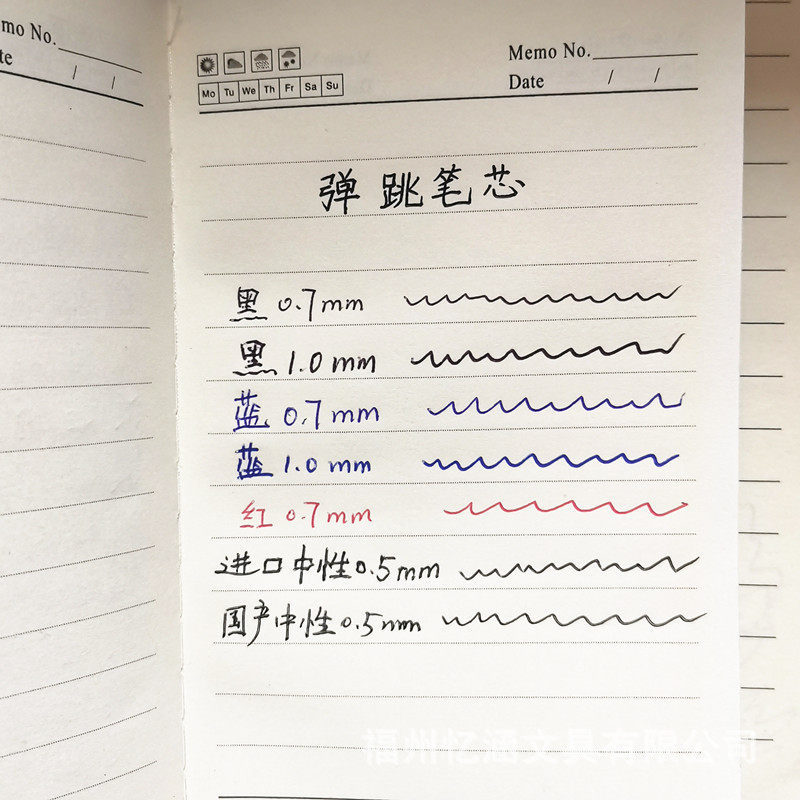 mo No.
te / /
Memo No.
Date / /
Mo Tu We Th Fr Sa Su
弹跳笔芯
黑 0.7mm
黑 1.0mm
蓝 0.7mm
蓝 1.0mm
红 0.7mm
进口中性0.5mm
国产中性0.5mm
福州忆涵文具有限公司